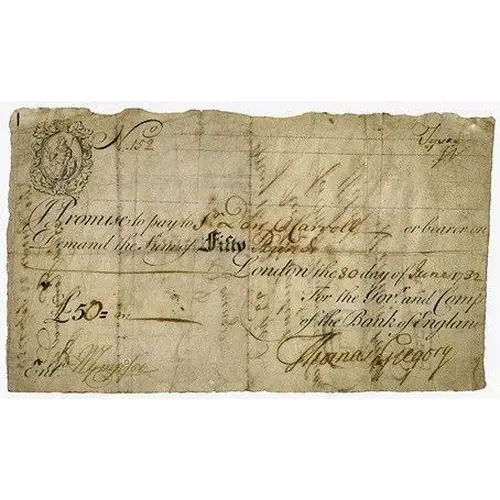 No. 152
I Promise to pay to Sr. Dan O Carroll or bearer on
Demand the Sum of Fifty Pounds
London the 30 day of June 1732
For the Govr. and Compa.
of the Bank of England
£50=
Thomas Gregory
Entd.